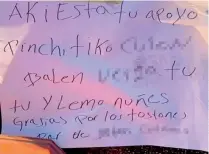 AKi Esta tu apoyo
Pinchitiko
balen verga tu
tu y Lemo nuñes
Grasias por los tostones
Por de